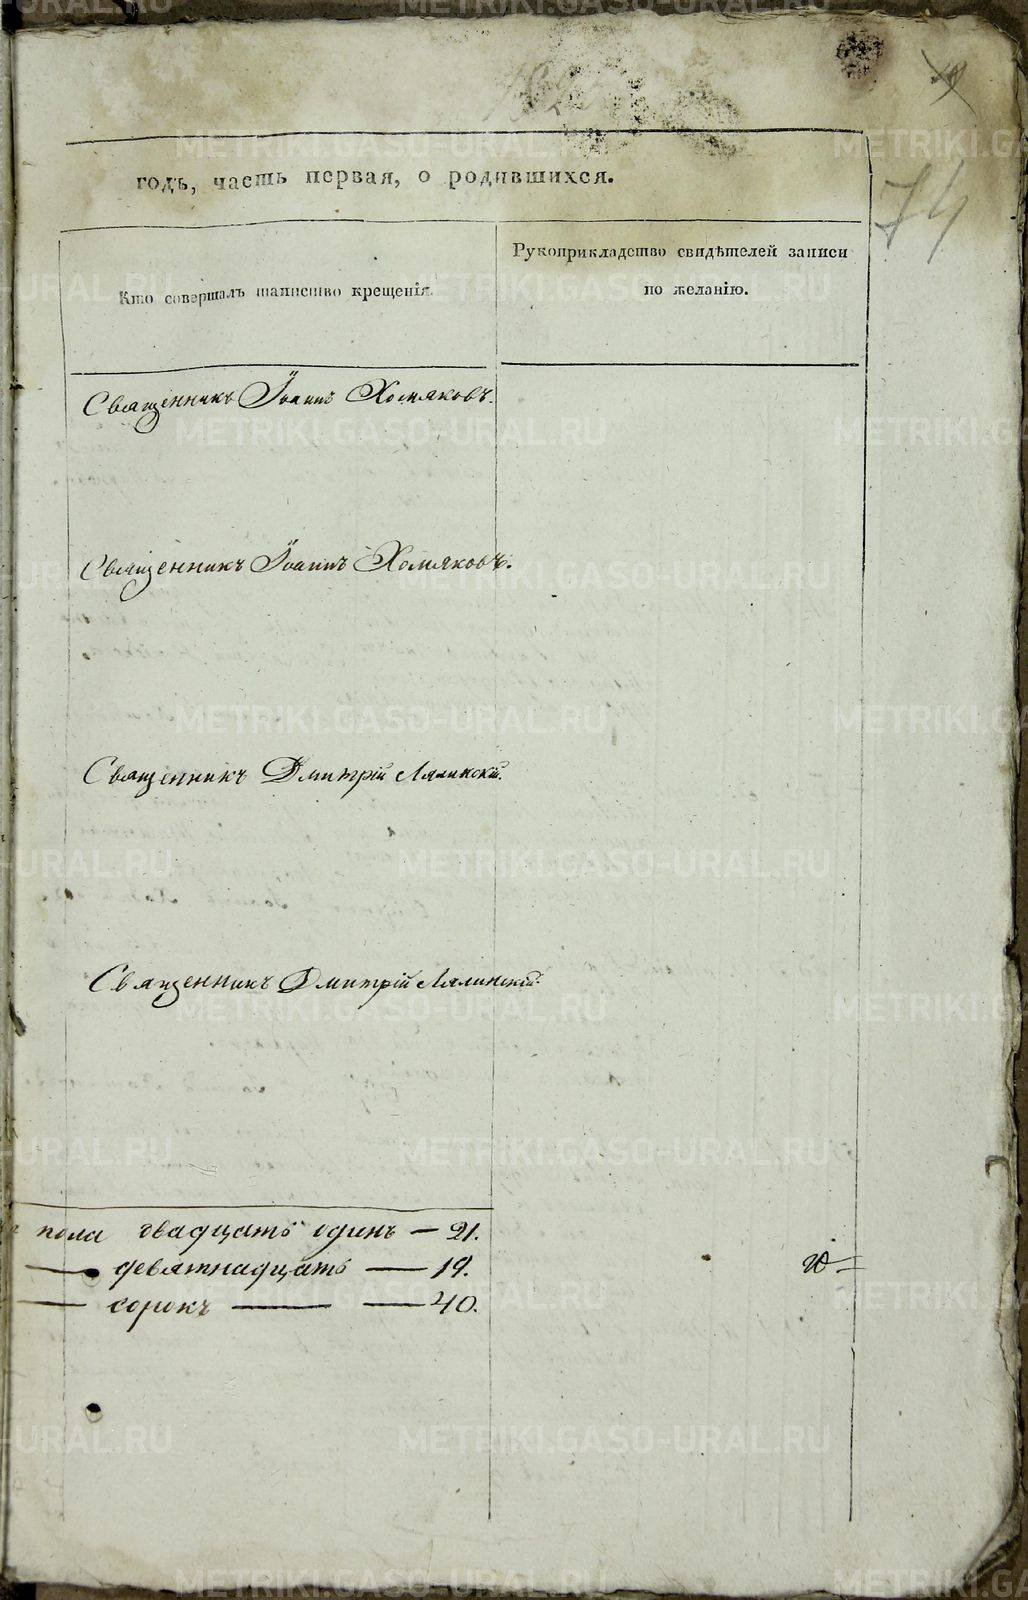 74
годъ, часть первая, о родившихся.
Кто совершалъ таинство крещенія.
Рукоприкладство свидѣтелей записи
по желанію.
Священникъ Іоаннъ Хомяковъ.
Священникъ Іоаннъ Хомяковъ.
Священникъ Дмитрій Лялинскій.
Священникъ Дмитрій Лялинскій.
пола двадцать одинъ — 21.
— девятнадцать — 19.
— сорокъ — — 40.
METRIKI.GASO-URAL.RU